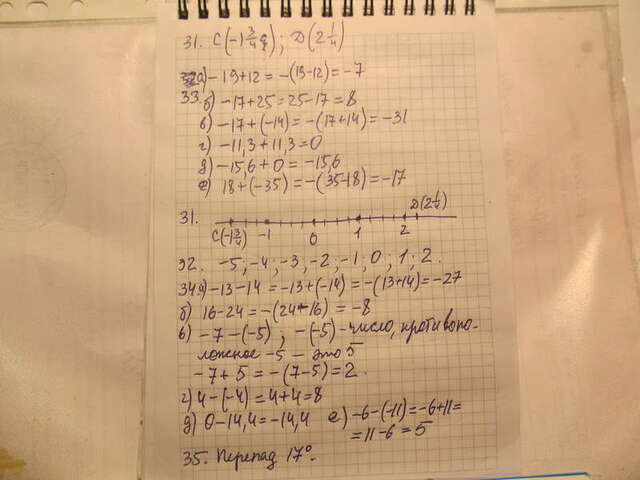 31. C(-1 3/4); D(2 1/4)
а) -19+12 = -(19-12) = -7
33. б) -17+25 = 25-17 = 8
в) -17+(-14) = -(17+14) = -31
г) -11,3+11,3 = 0
д) -15,6+0 = -15,6
е) 18+(-35) = -(35-18) = -17
31. D(2 1/4)
C(-1 3/4) -1 0 1 2
32. -5; -4; -3; -2; -1; 0; 1; 2.
34. а) -13-14 = -13+(-14) = -(13+14) = -27
б) 16-24 = -(24-16) = -8
в) -7-(-5); -(-5) - число, противопо-
ложное -5 - это 5
-7+5 = -(7-5) = 2.
г) 4-(-4) = 4+4 = 8
д) 0-14,4 = -14,4 е) -6-(-11) = -6+11 =
= 11-6 = 5
35. Перепад 17°.